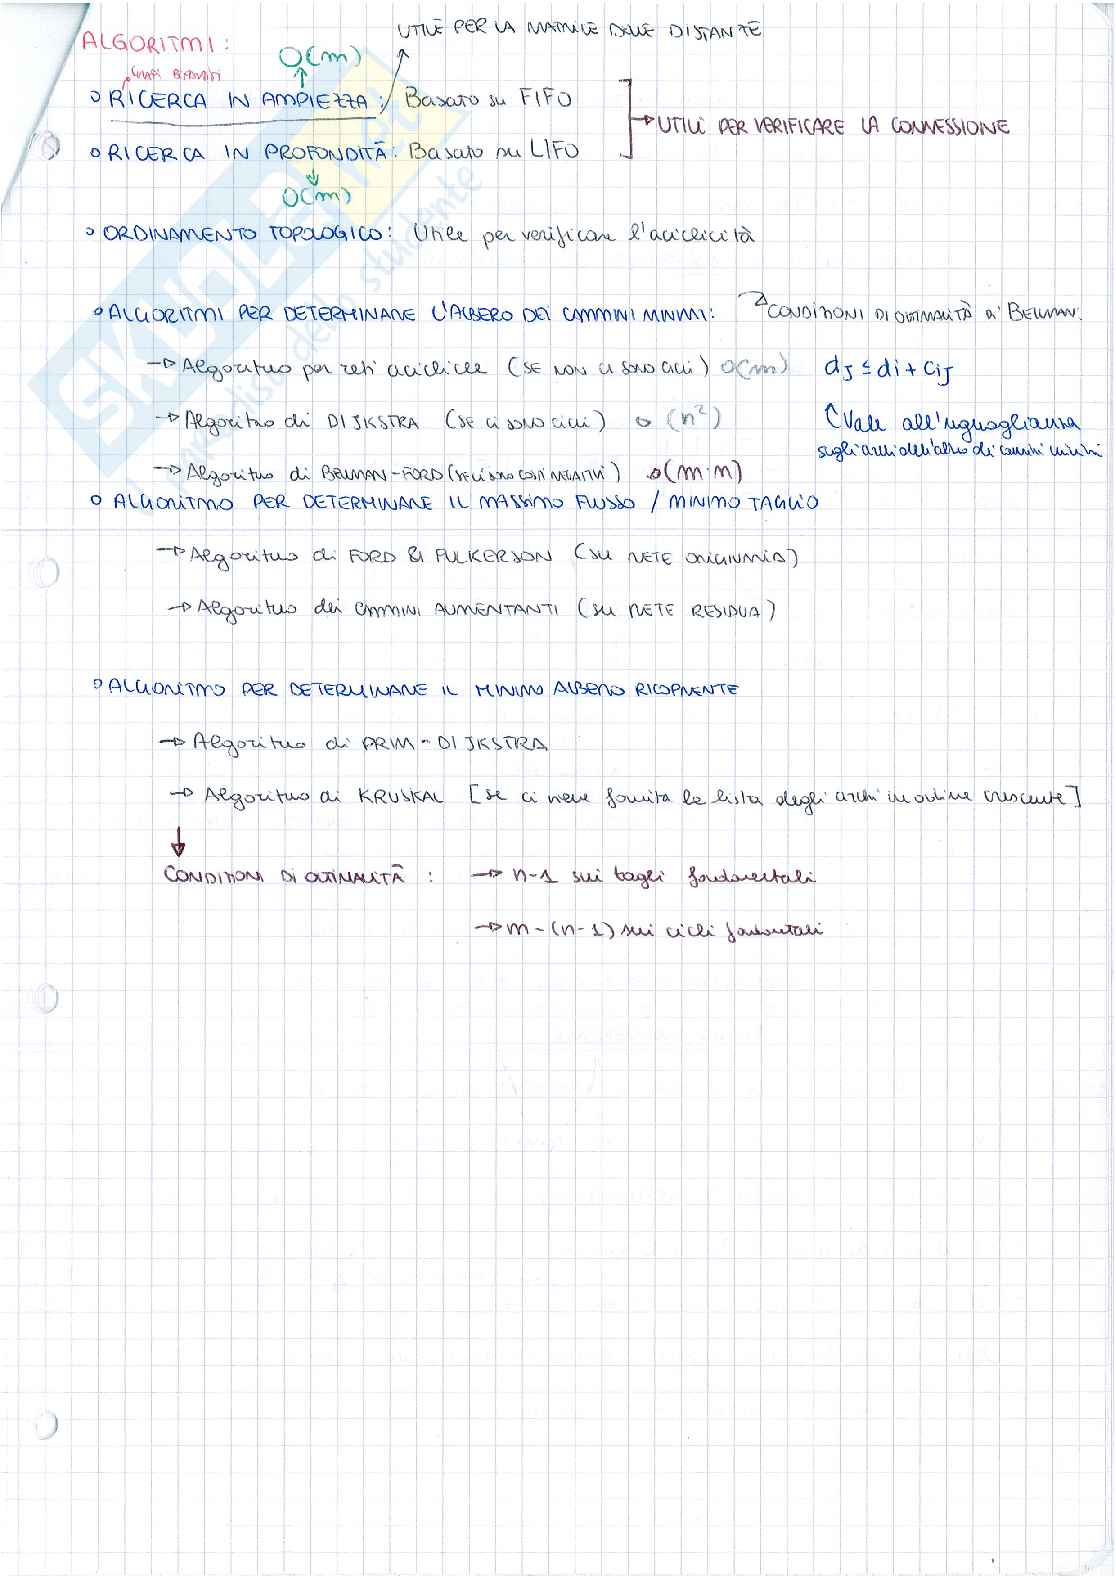 UTILE PER LA MATRICE DELLE DISTANZE
ALGORITMI:
O(m)
GRAFI BIPARTITI
RICERCA IN AMPIEZZA: Basato su FIFO
UTILI PER VERIFICARE LA CONNESSIONE
RICERCA IN PROFONDITÀ: Basato su LIFO
O(m)
ORDINAMENTO TOPOLOGICO: Utile per verificare l'aciclicità
ALGORITMI PER DETERMINARE L'ALBERO DEI CAMMINI MINIMI:
CONDIZIONI DI OTTIMALITÀ di BELLMAN:
→ Algoritmo per reti acicliche (SE NON CI SONO CICLI) O(m)
dj ≤ di + cij
→ Algoritmo di DIJKSTRA (SE CI SONO CICLI) O(n²)
(Vale all'uguaglianza
sugli archi dell'albero di cammini minimi
→ Algoritmo di BELLMAN-FORD (SE CI SONO COSTI NEGATIVI) O(m·n)
ALGORITMO PER DETERMINARE IL MASSIMO FLUSSO / MINIMO TAGLIO
→ Algoritmo di FORD & FULKERSON (SU RETE ORIGINARIA)
→ Algoritmo dei CAMMINI AUMENTANTI (SU RETE RESIDUA)
ALGORITMO PER DETERMINARE IL MINIMO ALBERO RICOPRENTE
→ Algoritmo di PRIM-DIJKSTRA
→ Algoritmo di KRUSKAL [se ci viene fornita la lista degli archi in ordine crescente]
CONDIZIONI DI OTTIMALITÀ:
→ n-1 sui tagli fondamentali
→ m-(n-1) sui cicli fondamentali
SKUOLA.net
paradiso dello studente